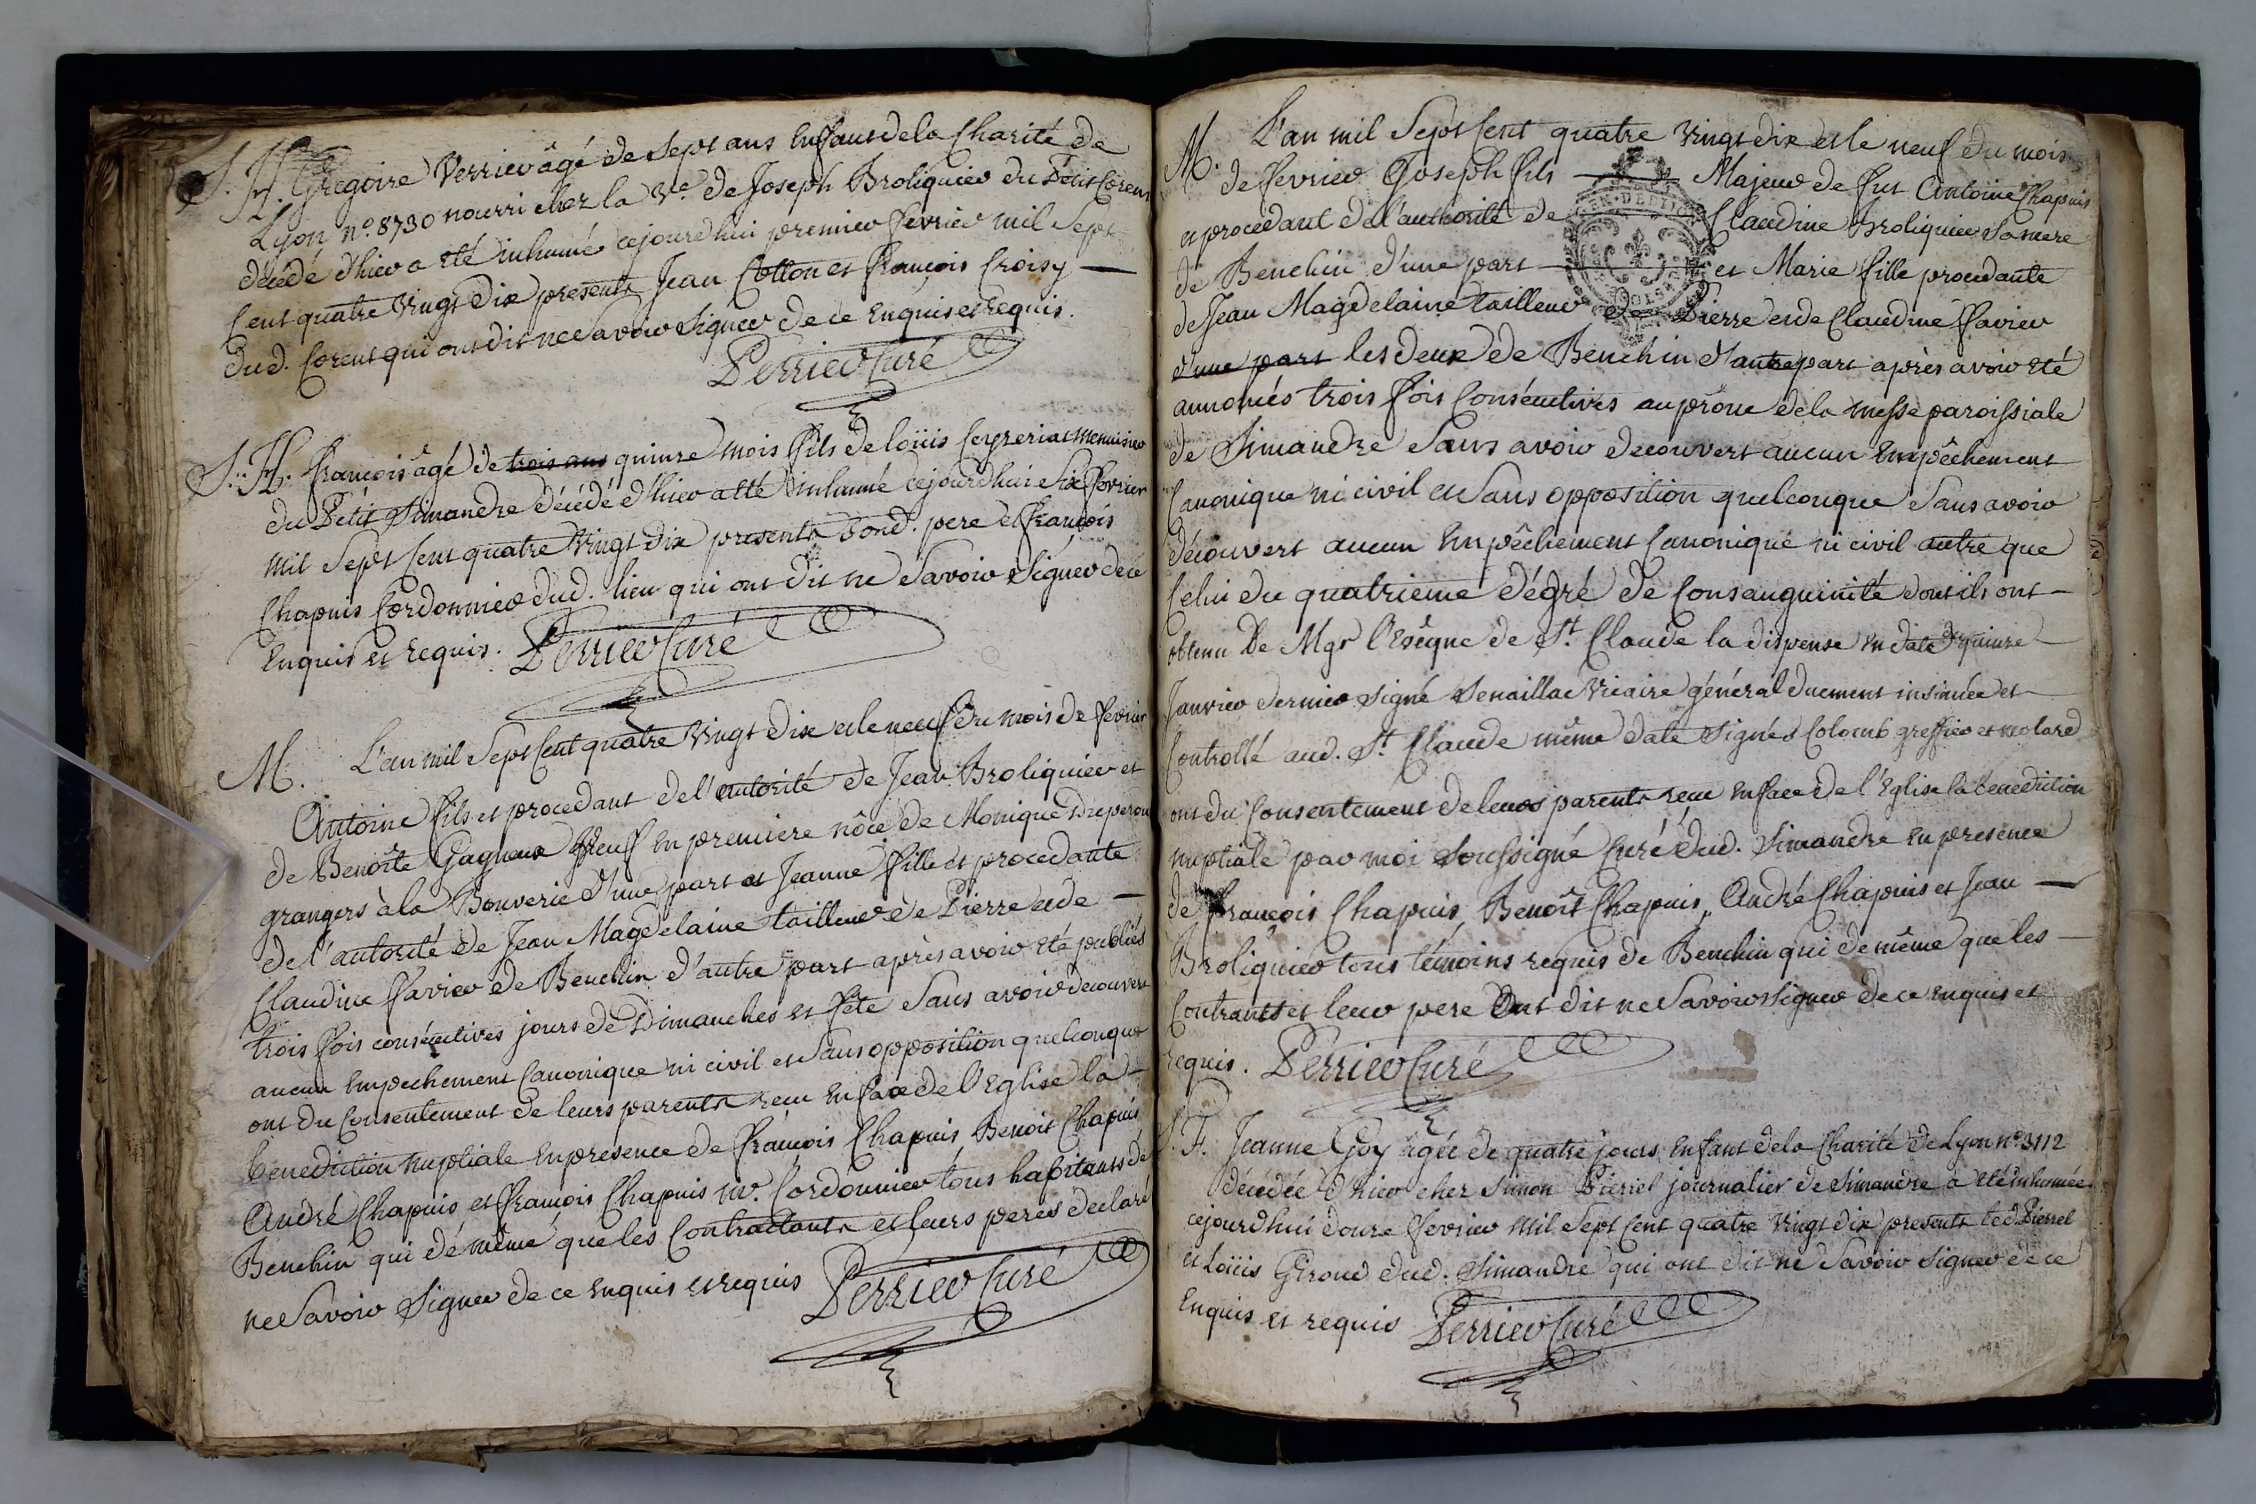 S. H. Gregoire Verrier âgé de sept ans Enfant de la Charité de
Lyon n.o 8730 nourri chez la V.e de Joseph Broliquier du Petit Corent
décédé d'hier a eté inhumé cejourdhui premier fevrier mil Sept
Cent quatre vingt dix presents Jean Cotton et françois Croisy
dud. Corent qui ont dit ne Savoir Signer de ce Enquis et Requis.
Perrier Curé
S. H. françois âgé de trois ans quinze mois fils de loüis Ceyzeriat menuisier
du Petit Simandre décédé d'hier a eté inhumé cejourdhui Six fevrier
mil Sept Cent quatre vingt dix presents Sond. pere et françois
Chapuis Cordonnier dud. lieu qui ont dit ne Savoir Signer de ce
Enquis et requis. Perrier Curé
M. L'an mil Sept Cent quatre vingt dix et le neuf du mois de fevrier
Antoine fils et procedant de l'autorité de Jean Broliquier et
de Benoîte Gagneux veuf En premiere nôce de Monique Duperon
grangers à la Bouverie d'une part et Jeanne fille et procedante
de l'autorité de Jean Magdelaine tailleur de Pierre et de
Claudine favier de Benchin d'autre part après avoir eté publiés
trois fois consécutives jours de Dimanches et fête Sans avoir decouvert
aucun Empechement Canonique ni civil et Sans opposition quelconque
ont du Consentement de leurs parents recu En face de l'Eglise la
benediction nuptiale En presence de francois Chapuis, Benoit Chapuis
André Chapuis et francois Chapuis Cordonnier tous habitants de
Benchin qui de même que les Contractants et leurs peres declaré
ne Savoir Signer de ce Enquis et requis Perrier Curé
M. L'an mil Sept Cent quatre vingt dix et le neuf du mois
de fevrier Joseph fils Majeur de fut Antoine Chapuis
et procedant de l'authorité de Claudine Broliquier Sa mere
de Benchin d'une part et Marie fille procedante
de Jean Magdelaine tailleur de Pierre et de Claudine favier
d'une part les deux de Benchin d'autre part après avoir eté
annoncés trois fois Consécutives au prône de la messe paroissiale
de Simandre Sans avoir decouvert aucun Empêchement
Canonique ni civil et Sans opposition quelconque Sans avoir
découvert aucun Empêchement Canonique ni civil autre que
Celui du quatrieme dégré de Consanguinité dont ils ont
obtenu De Mgr l'Evêque de St. Claude la dispense en date du quinze
Janvier dernier Signé Senaillac Vicaire général duement insinuée et
Controllé aud. St. Claude même date Signés Colomb greffier et molard
ont du Consentement de leurs parents recu En face de l'Eglise la benediction
nuptiale par moi Soussigné Curé dud. Simandre En presence
de françois Chapuis, Benoît Chapuis, André Chapuis et Jean
Broliquier tous témoins requis de Benchin qui de même que les
Contrants et leur pere Ont dit ne Savoir Signer de ce enquis et
requis. Perrier Curé
S. F. Jeanne Goy agée de quatre jours Enfant de la Charité de Lyon no. 3112
décédée d'hier chez Simon Pierrel journalier de Simandre a eté inhumée
cejourdhui douze fevrier mil Sept Cent quatre vingt dix presents led. Pierrel
et Loüis Giroud dud. Simandre qui ont dit ne Savoir Signer de ce
Enquis et requis Perrier Curé